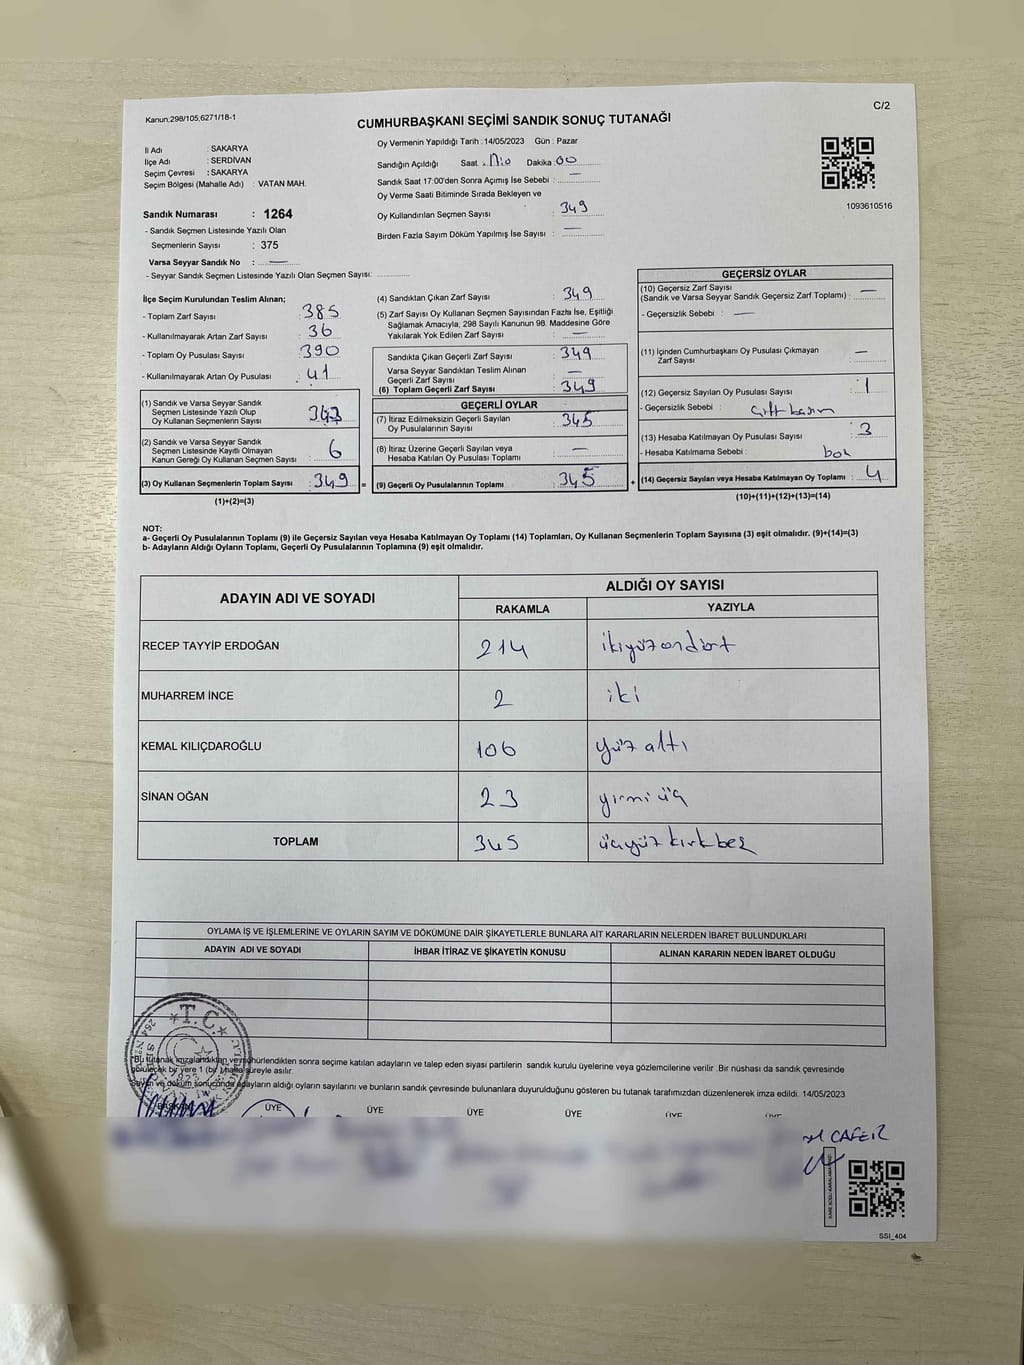 C/2
Kanun;298/105;6271/18-1
CUMHURBAŞKANI SEÇİMİ SANDIK SONUÇ TUTANAĞI
İl Adı : SAKARYA
İlçe Adı : SERDİVAN
Seçim Çevresi : SAKARYA
Seçim Bölgesi (Mahalle Adı) : VATAN MAH.
Sandık Numarası : 1264
- Sandık Seçmen Listesinde Yazılı Olan
Seçmenlerin Sayısı : 375
Varsa Seyyar Sandık No : —
- Seyyar Sandık Seçmen Listesinde Yazılı Olan Seçmen Sayısı:
Oy Vermenin Yapıldığı Tarih : 14/05/2023 Gün : Pazar
Sandığın Açıldığı Saat : Dakika : 00
Sandık Saat 17:00'den Sonra Açımış İse Sebebi : —
Oy Verme Saati Bitiminde Sırada Bekleyen ve
Oy Kullandırılan Seçmen Sayısı : 349
Birden Fazla Sayım Döküm Yapılmış İse Sayısı : —
1093610516
İlçe Seçim Kurulundan Teslim Alınan;
- Toplam Zarf Sayısı : 385
- Kullanılmayarak Artan Zarf Sayısı : 36
- Toplam Oy Pusulası Sayısı : 390
- Kullanılmayarak Artan Oy Pusulası : 41
(1) Sandık ve Varsa Seyyar Sandık
Seçmen Listesinde Yazılı Olup
Oy Kullanan Seçmenlerin Sayısı : 343
(2) Sandık ve Varsa Seyyar Sandık
Seçmen Listesinde Kayıtlı Olmayan
Kanun Gereği Oy Kullanan Seçmen Sayısı : 6
(3) Oy Kullanan Seçmenlerin Toplam Sayısı : 349 =
(1)+(2)=(3)
(4) Sandıktan Çıkan Zarf Sayısı : 349
(5) Zarf Sayısı Oy Kullanan Seçmen Sayısından Fazla İse, Eşitliği
Sağlamak Amacıyla, 298 Sayılı Kanunun 98. Maddesine Göre
Yakılarak Yok Edilen Zarf Sayısı : —
Sandıkta Çıkan Geçerli Zarf Sayısı : 349
Varsa Seyyar Sandıktan Teslim Alınan
Geçerli Zarf Sayısı : —
(6) Toplam Geçerli Zarf Sayısı : 349
GEÇERLİ OYLAR
(7) İtiraz Edilmeksizin Geçerli Sayılan
Oy Pusulalarının Sayısı : 345
(8) İtiraz Üzerine Geçerli Sayılan veya
Hesaba Katılan Oy Pusulası Toplamı : —
(9) Geçerli Oy Pusulalarının Toplamı : 345 +
GEÇERSİZ OYLAR
(10) Geçersiz Zarf Sayısı
(Sandık ve Varsa Seyyar Sandık Geçersiz Zarf Toplamı) : —
- Geçersizlik Sebebi : —
(11) İçinden Cumhurbaşkanı Oy Pusulası Çıkmayan
Zarf Sayısı : —
(12) Geçersiz Sayılan Oy Pusulası Sayısı : 1
- Geçersizlik Sebebi : çift basım
(13) Hesaba Katılmayan Oy Pusulası Sayısı : 3
- Hesaba Katılmama Sebebi :
(14) Geçersiz Sayılan veya Hesaba Katılmayan Oy Toplamı : 4
(10)+(11)+(12)+(13)=(14)
NOT:
a- Geçerli Oy Pusulalarının Toplamı (9) ile Geçersiz Sayılan veya Hesaba Katılmayan Oy Toplamı (14) Toplamları, Oy Kullanan Seçmenlerin Toplam Sayısına (3) eşit olmalıdır. (9)+(14)=(3)
b- Adayların Aldığı Oyların Toplamı, Geçerli Oy Pusulalarının Toplamına (9) eşit olmalıdır.
ADAYIN ADI VE SOYADI
ALDIĞI OY SAYISI
RAKAMLA YAZIYLA
RECEP TAYYİP ERDOĞAN 214 ikiyüzondört
MUHARREM İNCE 2 iki
KEMAL KILIÇDAROĞLU 106 yüz altı
SİNAN OĞAN 23 yirmi üç
TOPLAM 345 üçyüz kırkbeş
OYLAMA İŞ VE İŞLEMLERİNE VE OYLARIN SAYIM VE DÖKÜMÜNE DAİR ŞİKAYETLERLE BUNLARA AİT KARARLARIN NELERDEN İBARET BULUNDUKLARI
ADAYIN ADI VE SOYADI İHBAR İTİRAZ VE ŞİKAYETİN KONUSU ALINAN KARARIN NEDEN İBARET OLDUĞU
T.C.
"Bu tutanak imzalandıktan ve mühürlendikten sonra seçime katılan adayların ve talep eden siyasi partilerin sandık kurulu üyelerine veya gözlemcilerine verilir .Bir nüshası da sandık çevresinde
görülecek bir yere 1 (bir) hafta süreyle asılır.
Sayım ve döküm sonucunda adayların aldığı oyların sayılarını ve bunların sandık çevresinde bulunanlara duyurulduğunu gösteren bu tutanak tarafımızdan düzenlenerek imza edildi. 14/05/2023
BAŞKAN ÜYE ÜYE ÜYE ÜYE ÜYE ÜYE
CAFER
SSI_404